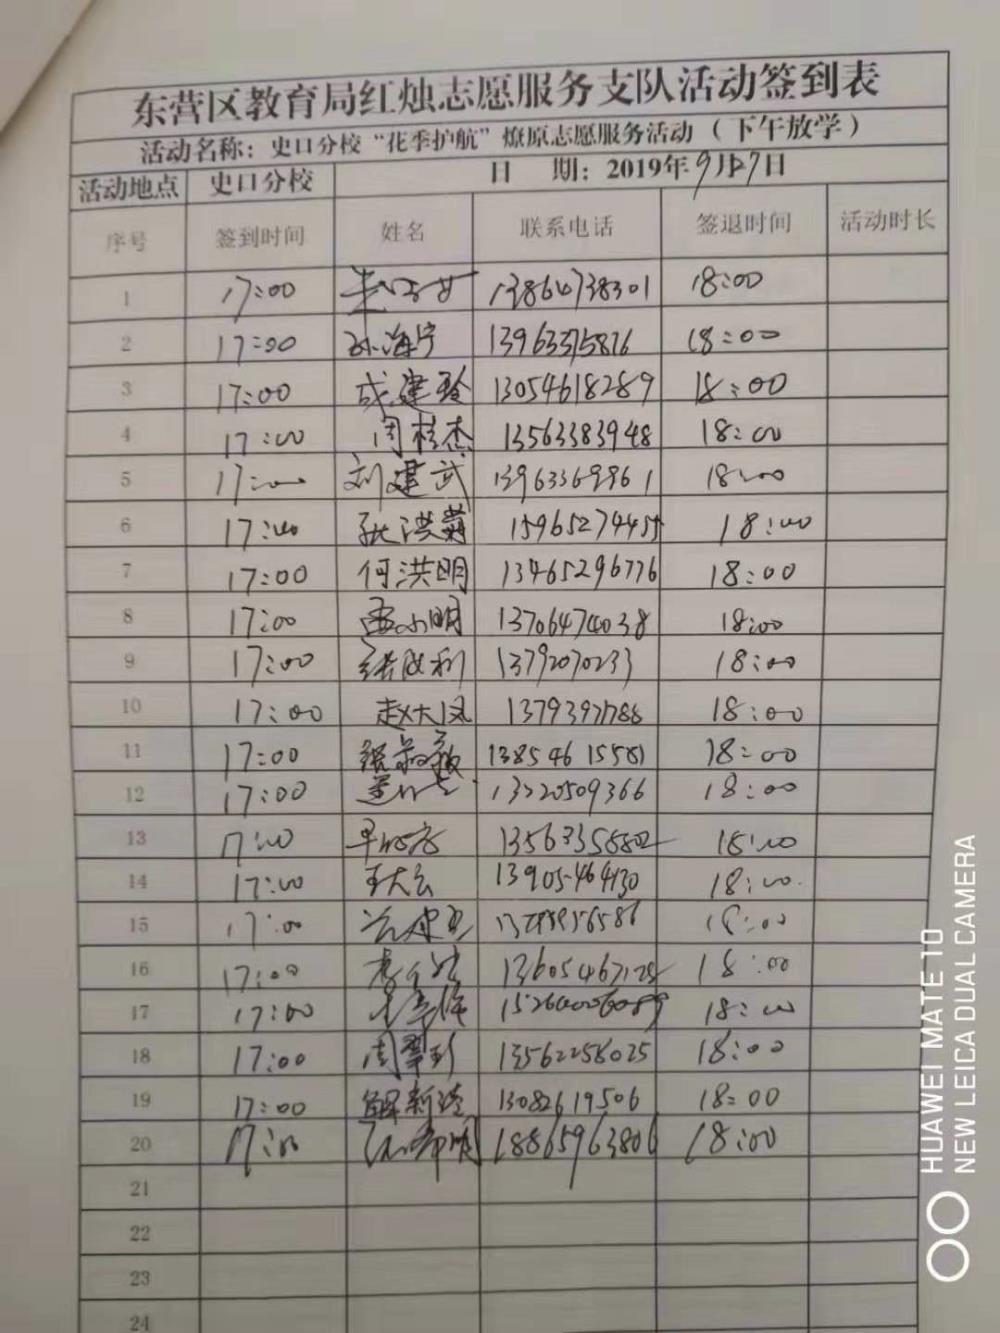 东营区教育局红烛志愿服务支队活动签到表
活动名称：史口分校“花季护航”燎原志愿服务活动（下午放学）
活动地点 史口分校 日 期：2019年9月27日
序号 签到时间 姓名 联系电话 签退时间 活动时长
1 17:00 13864738301 18:00
2 17:00 孙海宁 13963375876 18:00
3 17:00 成建玲 13054618289 18:00
4 17:00 周桂杰 13563383948 18:00
5 17:00 刘建武 13963369961 18:00
6 17:00 张洪菊 18:00
7 17:00 何洪明 13465296776 18:00
8 17:00 孟小明 13706474038 18:00
9 17:00 张胜利 13792070233 18:00
10 17:00 赵大凤 13793977788 18:00
11 17:00 13854615581 18:00
12 17:00 13220509366 18:00
13 17:00 18:00
14 17:00 王大云 13905464130 18:00
15 17:00 18:00
16 17:00 18:00
17 17:00 18:00
18 17:00 周翠珍 13562258025 18:00
19 17:00 13082619506 18:00
20 17:00 18865963806 18:00
21
22
23
24
HUAWEI MATE 10
NEW LEICA DUAL CAMERA